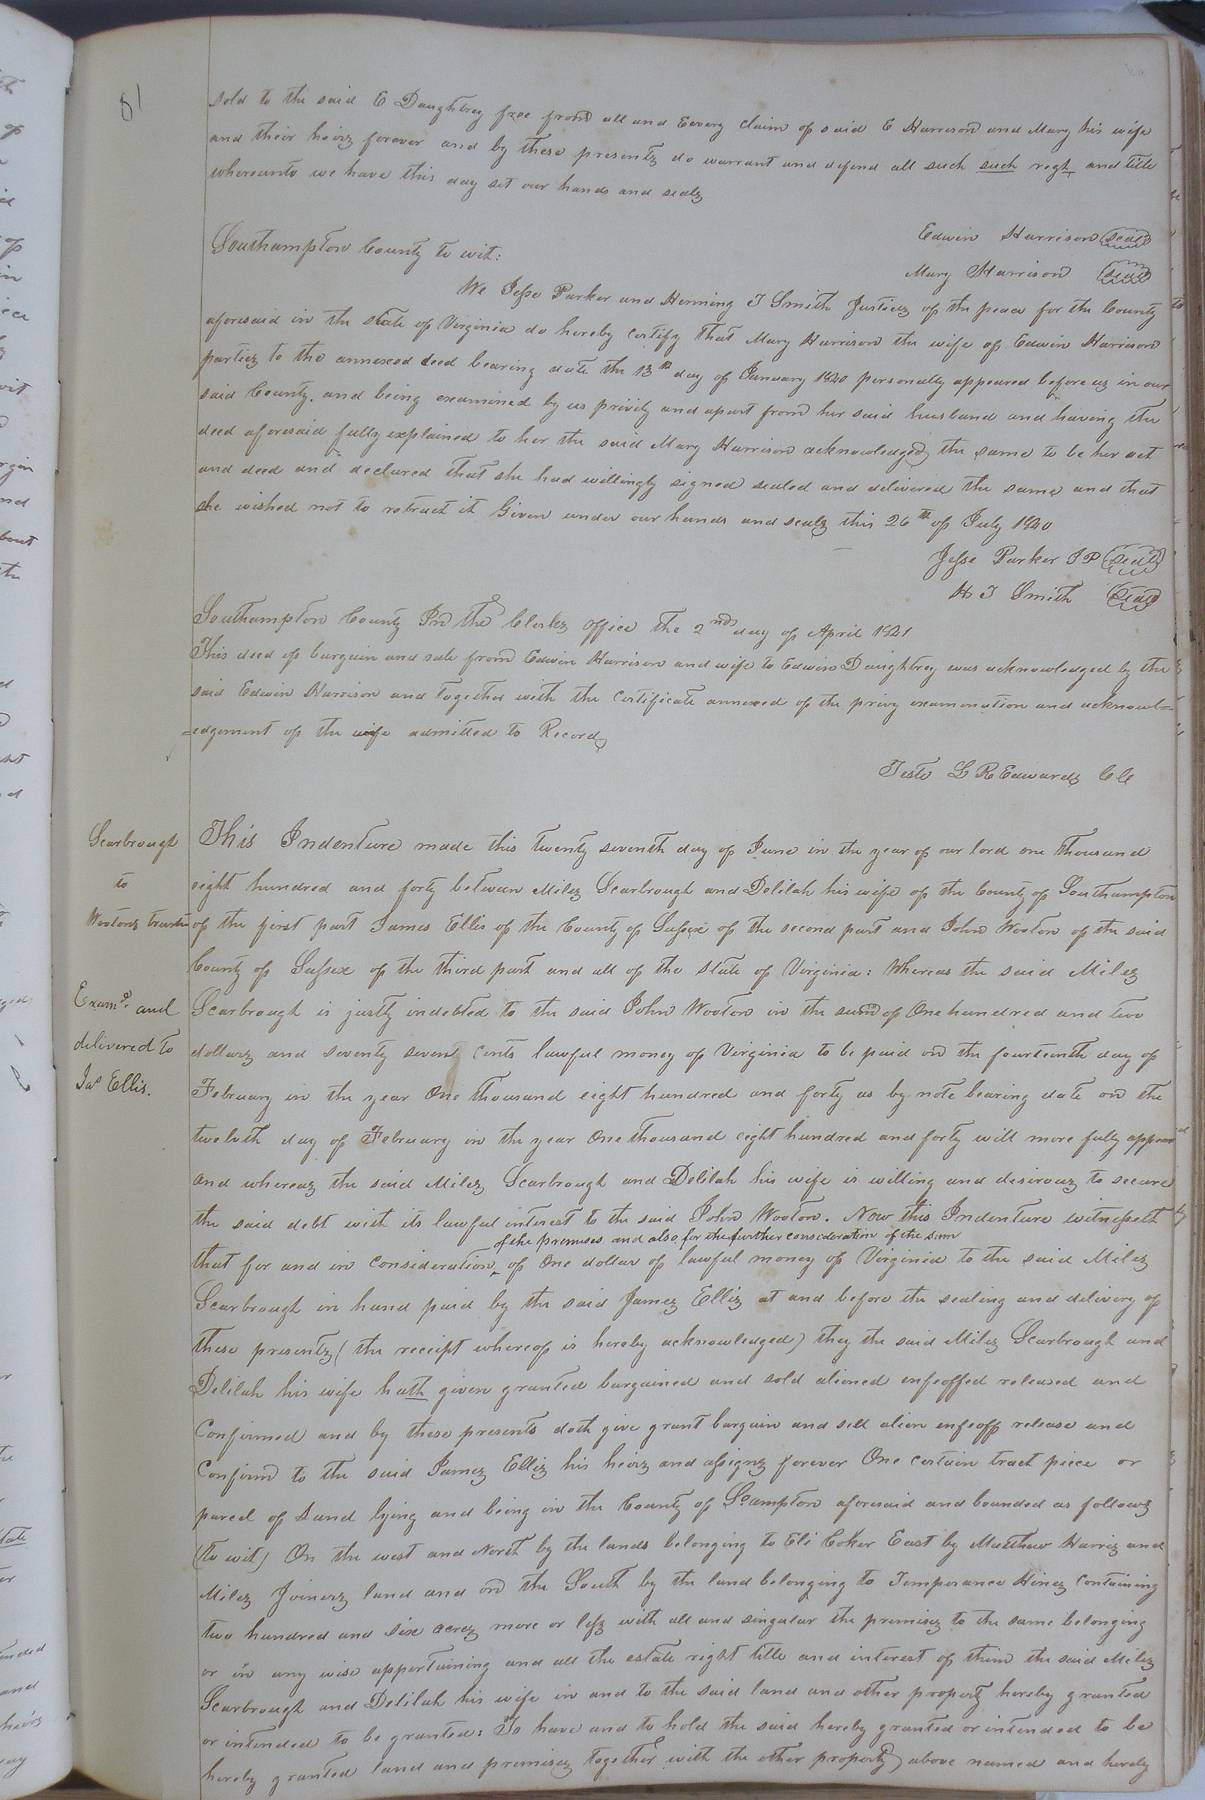 81
sold to the said E Daughtrey free from all and Eevery claim of said E Harrison and Mary his wife
and their heirs forever and by these presents do warrant and defend all such such regt and title
whereunto we have this day set our hands and seals
Edwin Harrison (Seal)
Southampton County to wit:
Mary Harrison (Seal)
We Jesse Parker and Henning T Smith Justices of the peace for the County
aforesaid in the state of Virginia do hereby certify that Mary Harrison the wife of Edwin Harrison
parties to the annexed deed bearing date the 13th day of January 1840 personally appeared before us in our
said County, and being examined by us privily and apart from her said husband and having the
deed aforesaid fully explained to her the said Mary Harrison acknowledged the same to be her act
and deed and declared that she had willingly signed sealed and delivered the same and that
she wished not to retract it Given under our hands and seals this 26th of July 1840
Jesse Parker JP (Seal)
H T Smith (Seal)
Southampton County In the Clerks office the 2nd day of April 1841
This deed of bargain and sale from Edwin Harrison and wife to Edwin Daughtrey was acknowledged by the
said Edwin Harrison and together with the certificate annexed of the privy examonation and acknowl=
=edgement of the wife admitted to Record
Teste L R Edwards CC
Scarbrough
to
Wootons trustee
Examd. and
delivered to
Jas Ellis.
This Indenture made this twenty seventh day of June in the year of our lord one thousand
eight hundred and forty between Miles Scarbrough and Delilah his wife of the County of Southampton
of the first part James Ellis of the County of Sussex of the second part and John Wooton of the said
County of Sussex of the third part and all of the state of Virginia: Whereas the said Miles
Scarbrough is justly indebted to the said John Wooton in the sum of One hundred and two
dollars and seventy seven cents lawful money of Virginia to be paid on the fourteenth day of
February in the year One thousand eight hundred and forty as by note bearing date on the
twelvth day of February in the year One thousand eight hundred and forty will more fully appear
and whereas the said Miles Scarbrough and Delilah his wife is willing and desirous to secure
the said debt with its lawful interest to the said John Wooton. Now this Indenture witnesseth
of the premises and also for the further consideration of the sum
that for and in consideration of One dollar of lawful money of Virginia to the said Miles
Scarbrough in hand paid by the said James Ellis at and before the sealing and delivery of
these presents (the receipt whereof is hereby acknowledged) they the said Miles Scarbrough and
Delilah his wife hath given granted bargained and sold aliened enfeoffed released and
Confirmed and by these presents doth give grant bargain and sell alien enfeoff release and
Confirm to the said James Ellis his heirs and assigns forever One certain tract piece or
parcel of Land lying and being in the County of Sampton aforesaid and bounded as follows
(to wit) On the west and North by the lands belonging to Eli Coker East by Matthew Harris and
Miles Joiners land and on the South by the land belonging to Temperance Hines Containing
two hundred and six acres more or less with all and singular the premises to the same belonging
or in any wise appertaining and all the estate right title and interest of them the said Miles
Scarbrough and Delilah his wife in and to the said land and other property hereby granted
or intended to be granted: To have and to hold the said hereby granted or intended to be
hereby granted land and premises together with the other property above named and hereby